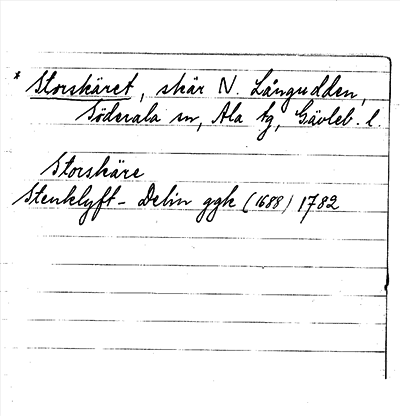 * Storskäret, skär N. Långudden,
Söderala sn, Ala tg, Gävleb. l.
Storskäre
Stenklyft - Delin ggk (1688) 1782